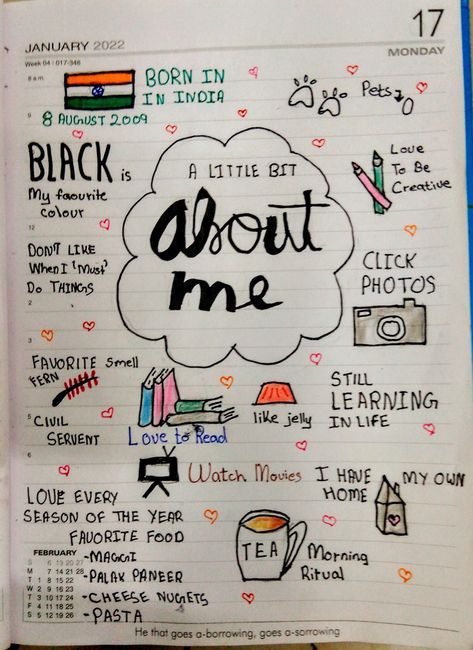 17
JANUARY 2022
MONDAY
Week 04 | 017-348
8 a.m.
BORN IN
IN INDIA
Pets
0
9
8 AUGUST 2009
BLACK is
My favourite
colour
A LITTLE BIT
about
me
Love
To Be
Creative
12
DON'T LIKE
When I 'Must'
Do THINGS
CLICK
PHOTOS
2
3
FAVORITE Smell
FERN
STILL
LEARNING
IN LIFE
5
CIVIL
SERVENT
Love to Read
like jelly
6
Watch Movies
I HAVE MY OWN
HOME
LOVE EVERY
SEASON OF THE YEAR
FAVORITE FOOD
-MAGGI
-PALAK PANEER
-CHEESE NUGGETS
-PASTA
TEA
Morning
Ritual
FEBRUARY
S 6 13 20 27
M 7 14 21 28
T 1 8 15 22
W 2 9 16 23
T 3 10 17 24
F 4 11 18 25
S 5 12 19 26
He that goes a-borrowing, goes a-sorrowing